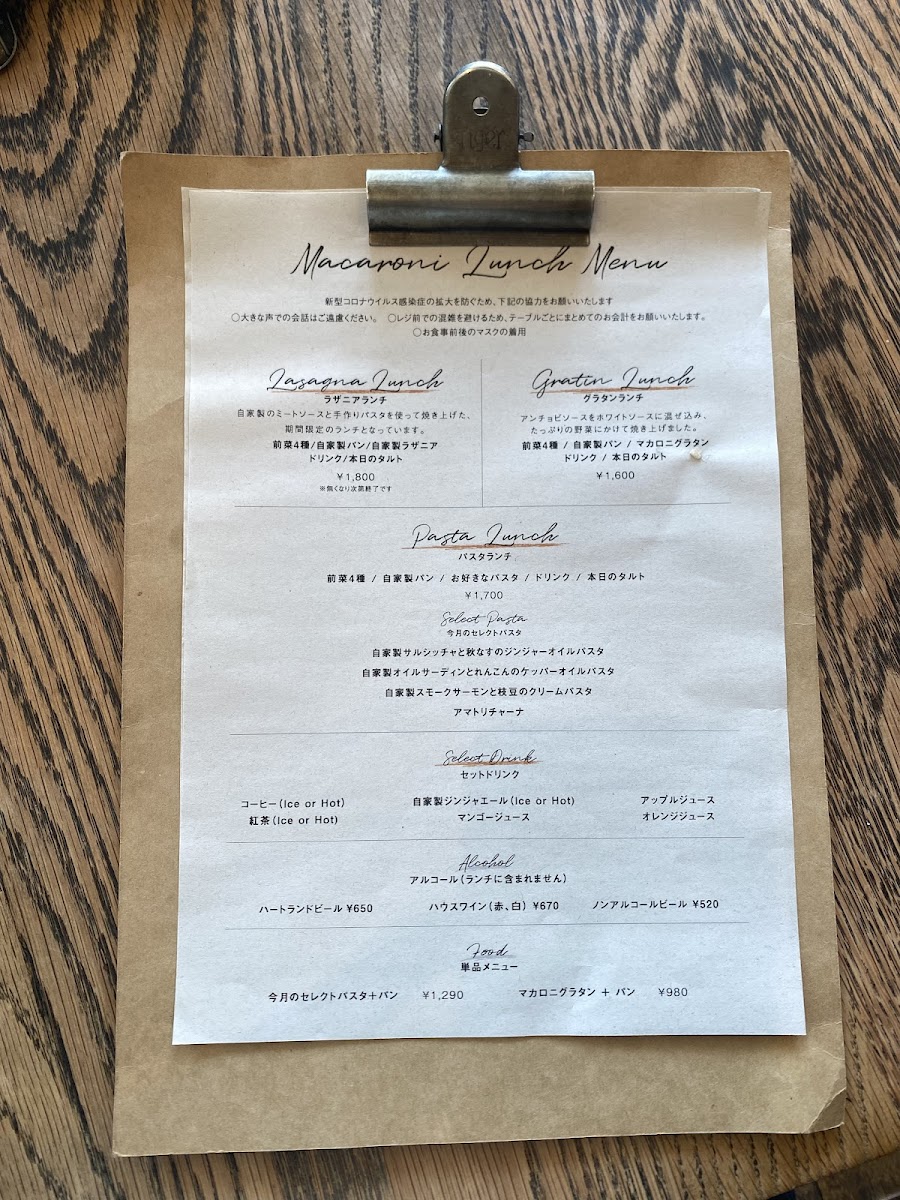 Tiger
Macaroni Lunch Menu
新型コロナウイルス感染症の拡大を防ぐため、下記の協力をお願いいたします
○大きな声での会話はご遠慮ください。 ○レジ前での混雑を避けるため、テーブルごとにまとめてのお会計をお願いいたします。
○お食事前後のマスクの着用
Lasagna Lunch
ラザニアランチ
自家製のミートソースと手作りパスタを使って焼き上げた、
期間限定のランチとなっています。
前菜4種/自家製パン/自家製ラザニア
ドリンク/本日のタルト
¥1,800
※無くなり次第終了です
Gratin Lunch
グラタンランチ
アンチョビソースをホワイトソースに混ぜ込み、
たっぷりの野菜にかけて焼き上げました。
前菜4種 / 自家製パン / マカロニグラタン
ドリンク / 本日のタルト
¥1,600
Pasta Lunch
パスタランチ
前菜4種 / 自家製パン / お好きなパスタ / ドリンク / 本日のタルト
¥1,700
Select Pasta
今月のセレクトパスタ
自家製サルシッチャと秋なすのジンジャーオイルパスタ
自家製オイルサーディンとれんこんのケッパーオイルパスタ
自家製スモークサーモンと枝豆のクリームパスタ
アマトリチャーナ
Select Drink
セットドリンク
コーヒー(Ice or Hot) 自家製ジンジャエール(Ice or Hot) アップルジュース
紅茶(Ice or Hot) マンゴージュース オレンジジュース
Alcohol
アルコール(ランチに含まれません)
ハートランドビール ¥650 ハウスワイン(赤、白) ¥670 ノンアルコールビール ¥520
Food
単品メニュー
今月のセレクトパスタ+パン ¥1,290 マカロニグラタン + パン ¥980